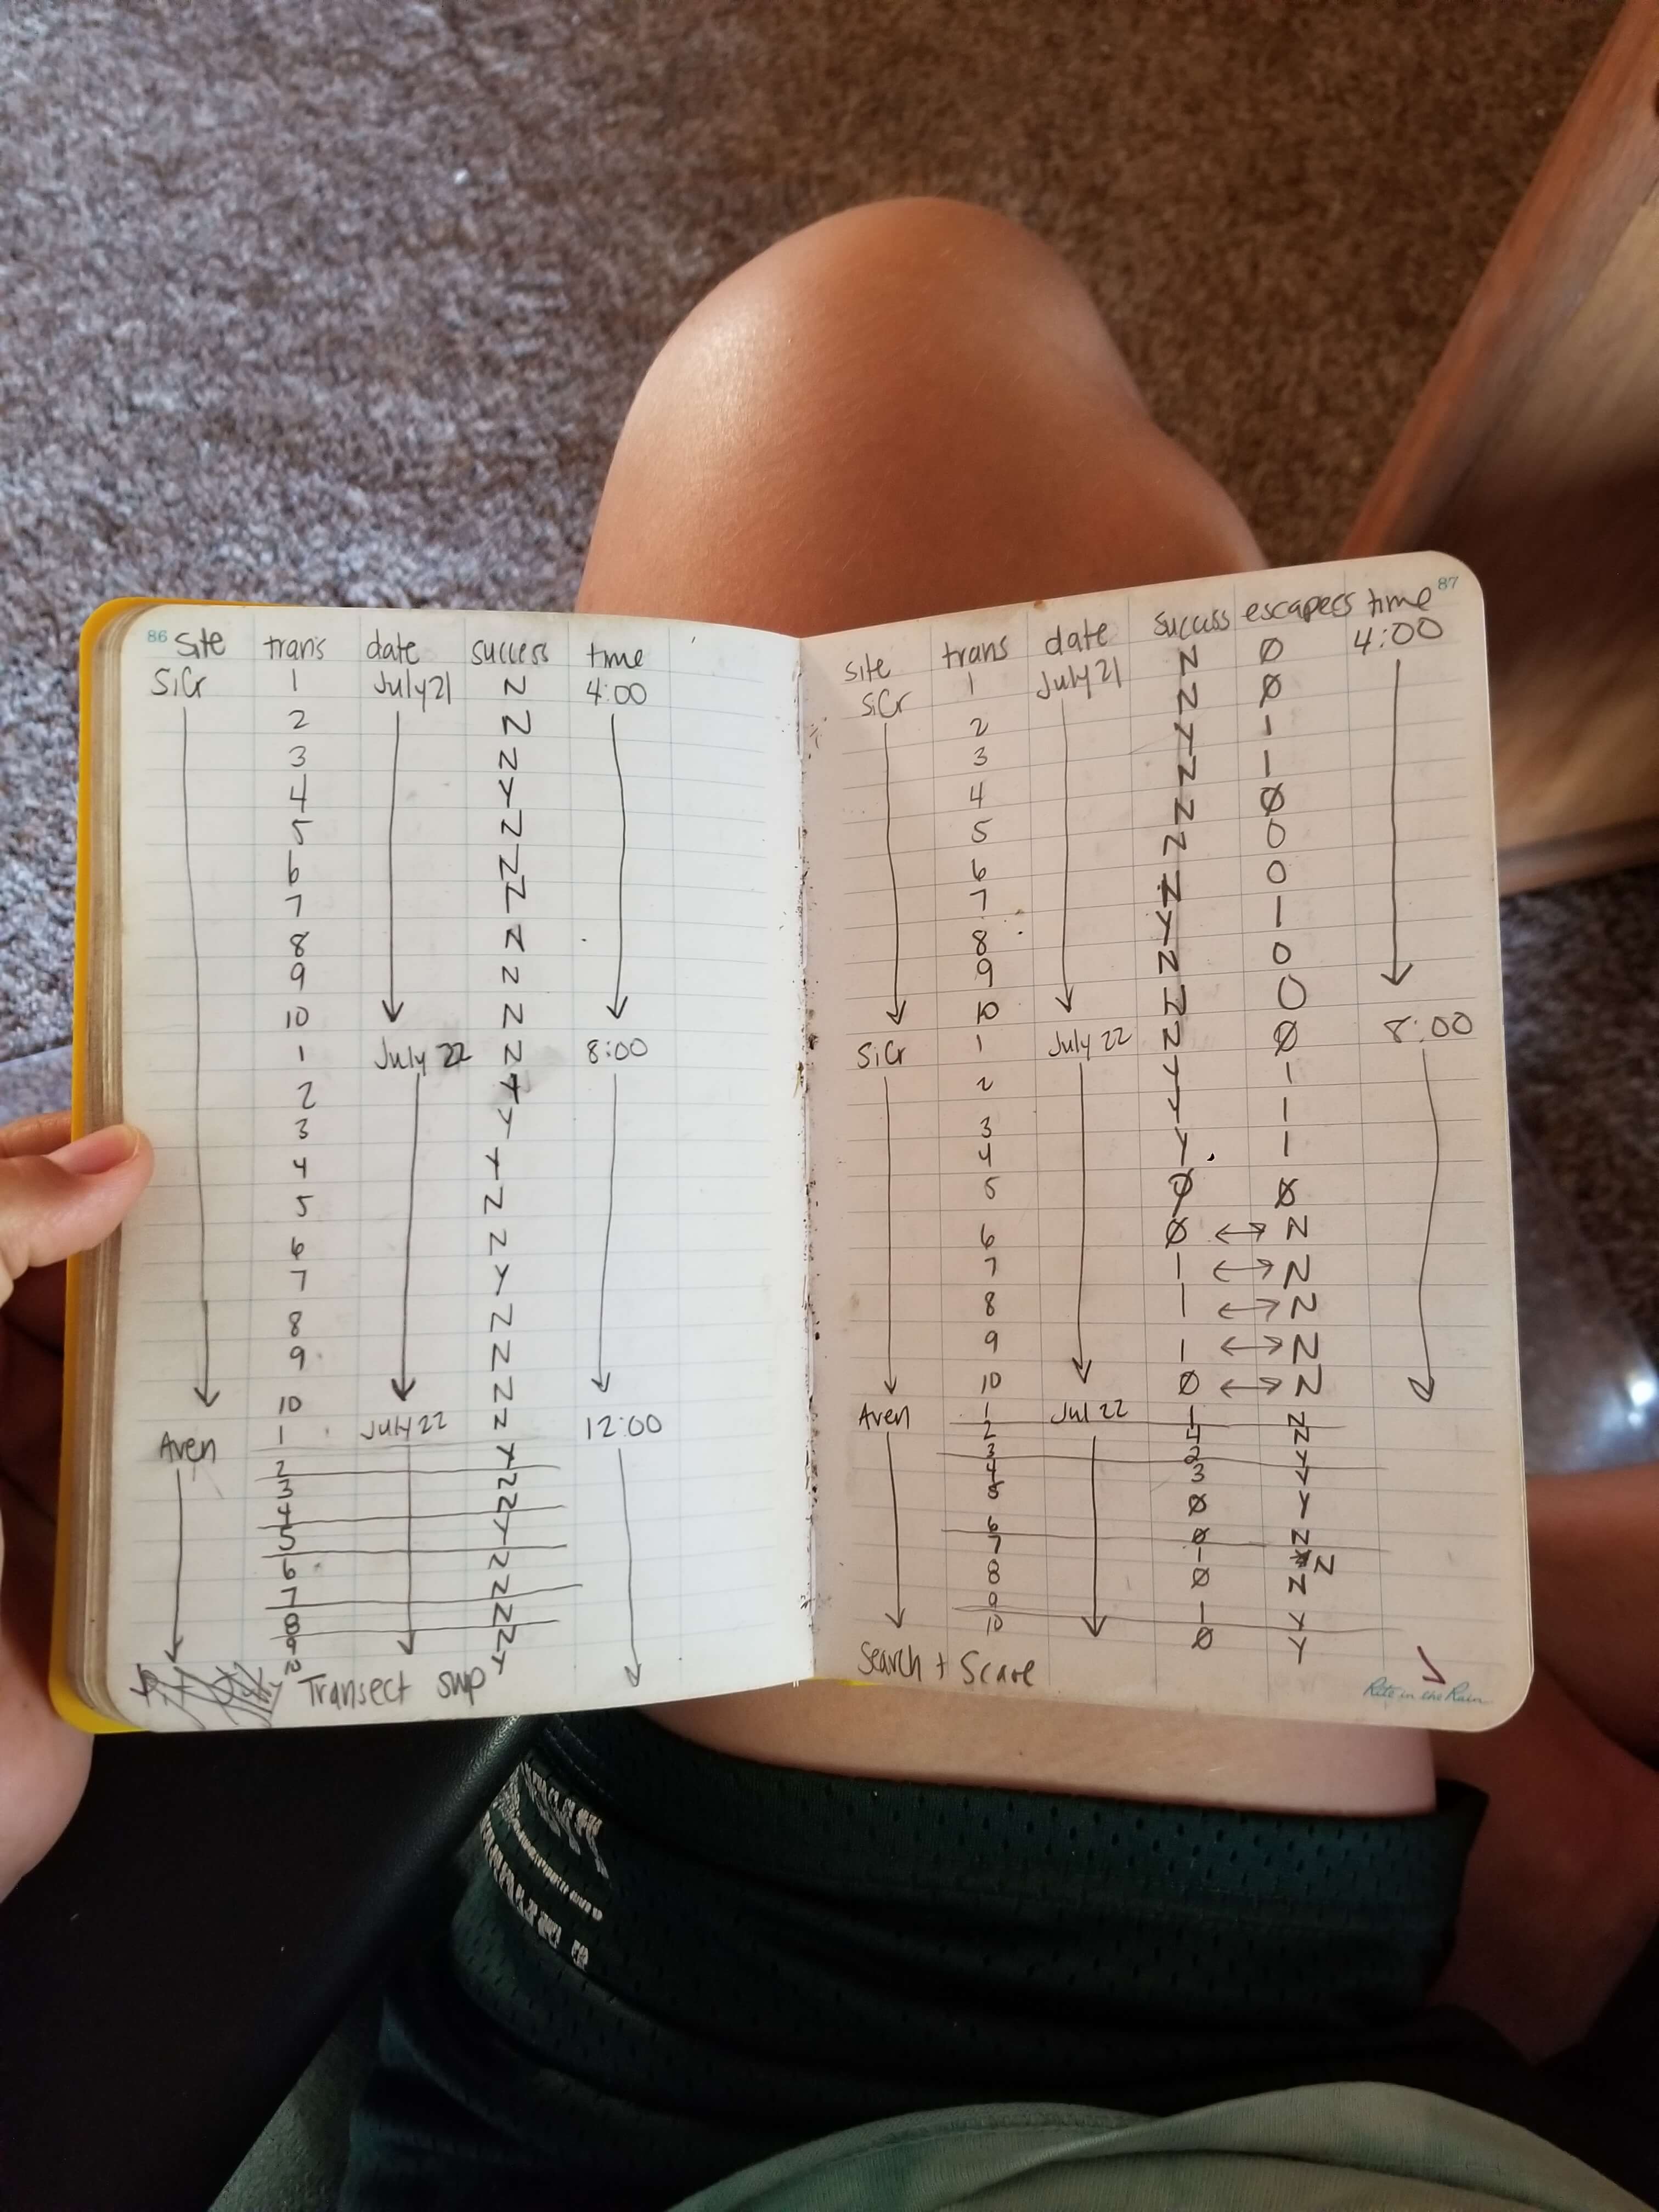 86 Site trans date success time
SiCr 1 July 21 N 4:00
2 N
3 N
4 Y
5 N
6 N
7 N
8 N
9 N
10 N
1 July 22 N 8:00
2 Y
3 Y
4 Y
5 N
6 N
7 Y
8 N
9 N
10 N
Aven 1 July 22 N 12:00
2 Y
3 N
4 N
5 Y
6 N
7 N
8 N
9 N
10 Y
Transect swp
site trans date success escapees time 87
SiCr 1 July 21 N Ø 4:00
2 N Ø
3 Y 1
4 N 1
5 N Ø
6 N 0
7 N 0
8 Y 1
9 N 0
10 N 0
SiCr 1 July 22 N Ø 8:00
2 Y 1
3 Y 1
4 Y 1
5 Ø Ø
6 Ø ↔ N
7 1 ↔ N
8 1 ↔ N
9 1 ↔ N
10 Ø ↔ N
Aven 1 Jul 22 1 N
2 N
3 2 Y
4 3 Y
5 Ø Y
6 Ø N
7 1 N
8 Ø N
9 1 Y
10 Ø Y
Search + Scare
Rite in the Rain